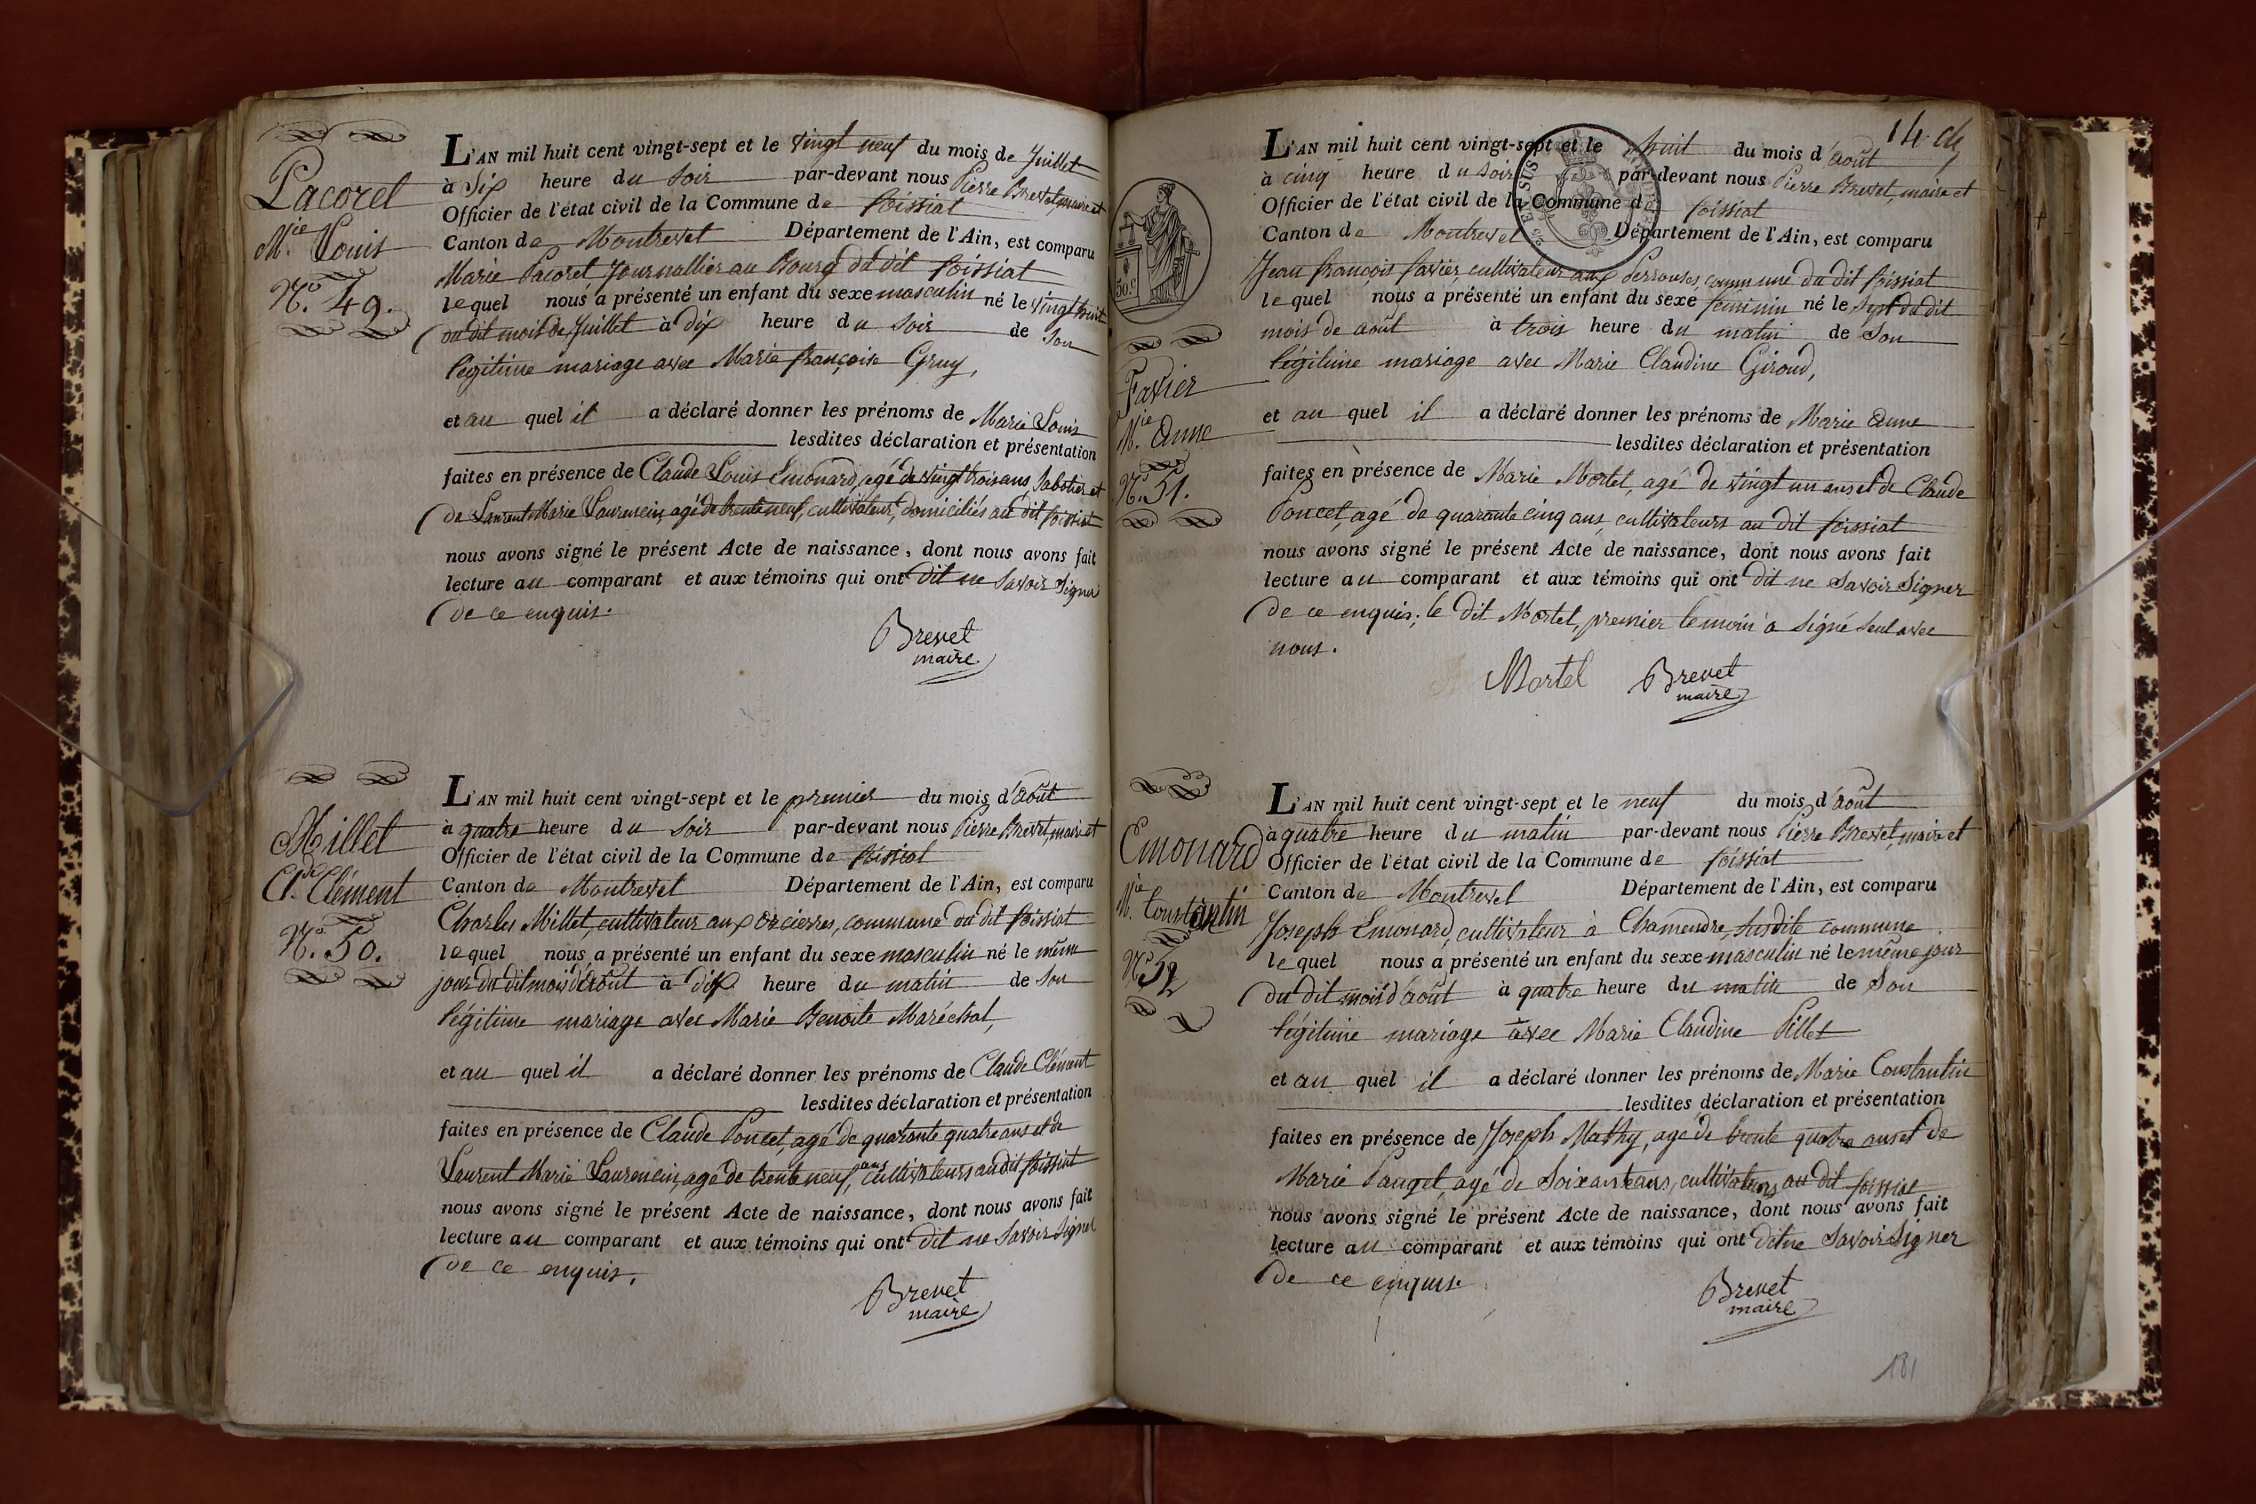 Pacoret
M.ie Louis
N.o 49.
L'AN mil huit cent vingt-sept et le vingt neuf du mois de Juillet
à Six heure du soir par-devant nous Pierre Brevet, maire et
Officier de l'état civil de la Commune de foissiat
Canton de Montrevel Département de l'Ain, est comparu
Marie Pacoret Journallier au Bourg du dit foissiat
lequel nous a présenté un enfant du sexe masculin né le vingt huit
du dit mois de Juillet à dix heure du soir de son
légitime mariage avec Marie françoise Gruy,
et au quel il a déclaré donner les prénoms de Marie Louis
lesdites déclaration et présentation
faites en présence de Claude Louis Emonard, agé de vingt trois ans, Sabotier et
de Laurent Marie Laurencin, agé de trente neuf, cultivateur, domiciliés au dit foissiat
nous avons signé le présent Acte de naissance, dont nous avons fait
lecture au comparant et aux témoins qui ont dit ne savoir signer
de ce enquis.
Brevet
maire
Millet
Cl.de Clément
N.o 50.
L'AN mil huit cent vingt-sept et le premier du mois d'août
à quatre heure du soir par-devant nous Pierre Brevet, maire et
Officier de l'état civil de la Commune de foissiat
Canton de Montrevel Département de l'Ain, est comparu
Charles Millet, cultivateur aux orcières, commune du dit foissiat
lequel nous a présenté un enfant du sexe masculin né le même
jour du dit mois d'août à dix heure du matin de son
légitime mariage avec Marie Benoite Maréchal,
et au quel il a déclaré donner les prénoms de Claude Clément
lesdites déclaration et présentation
faites en présence de Claude Poncet, agé de quarante quatre ans et de
Laurent Marie Laurencin, agé de trente neuf ans, cultivateurs au dit foissiat
nous avons signé le présent Acte de naissance, dont nous avons fait
lecture au comparant et aux témoins qui ont dit ne savoir signer
de ce enquis.
Brevet
maire
14.
50.c
Favier
M.ie anne
N.o 51.
L'AN mil huit cent vingt-sept et le huit du mois d'août
à cinq heure du soir par-devant nous Pierre Brevet, maire et
Officier de l'état civil de la Commune de foissiat
Canton de Montrevel Département de l'Ain, est comparu
Jean françois favier cultivateur aux Perrouses, commune du dit foissiat
lequel nous a présenté un enfant du sexe féminin né le sept du dit
mois de août à trois heure du matin de son
légitime mariage avec Marie Claudine Giroud,
et au quel il a déclaré donner les prénoms de Marie anne
lesdites déclaration et présentation
faites en présence de Marie Mortel, agé de vingt un ans et de Claude
Poncet, agé de quarante cinq ans, cultivateurs au dit foissiat
nous avons signé le présent Acte de naissance, dont nous avons fait
lecture au comparant et aux témoins qui ont dit ne savoir signer
de ce enquis; le dit Mortel, premier temoin a signé seul avec
nous.
Mortel Brevet
maire
Emonard
M.ie Constantin
N.o 52
L'AN mil huit cent vingt-sept et le neuf du mois d'août
à quatre heure du matin par-devant nous Pierre Brevet, maire et
Officier de l'état civil de la Commune de foissiat
Canton de Montrevel Département de l'Ain, est comparu
Joseph Emonard, cultivateur à Chamendre, susdite commune
lequel nous a présenté un enfant du sexe masculin né le même jour
du dit mois d'août à quatre heure du matin de son
légitime mariage avec Marie Claudine Pillet
et au quel il a déclaré donner les prénoms de Marie Constantin
lesdites déclaration et présentation
faites en présence de Joseph Mathy, agé de trente quatre ans et de
Marie Pauget, agé de Soixante ans, cultivateurs au dit foissiat
nous avons signé le présent Acte de naissance, dont nous avons fait
lecture au comparant et aux témoins qui ont dit ne savoir signer
de ce enquis.
Brevet
maire
181